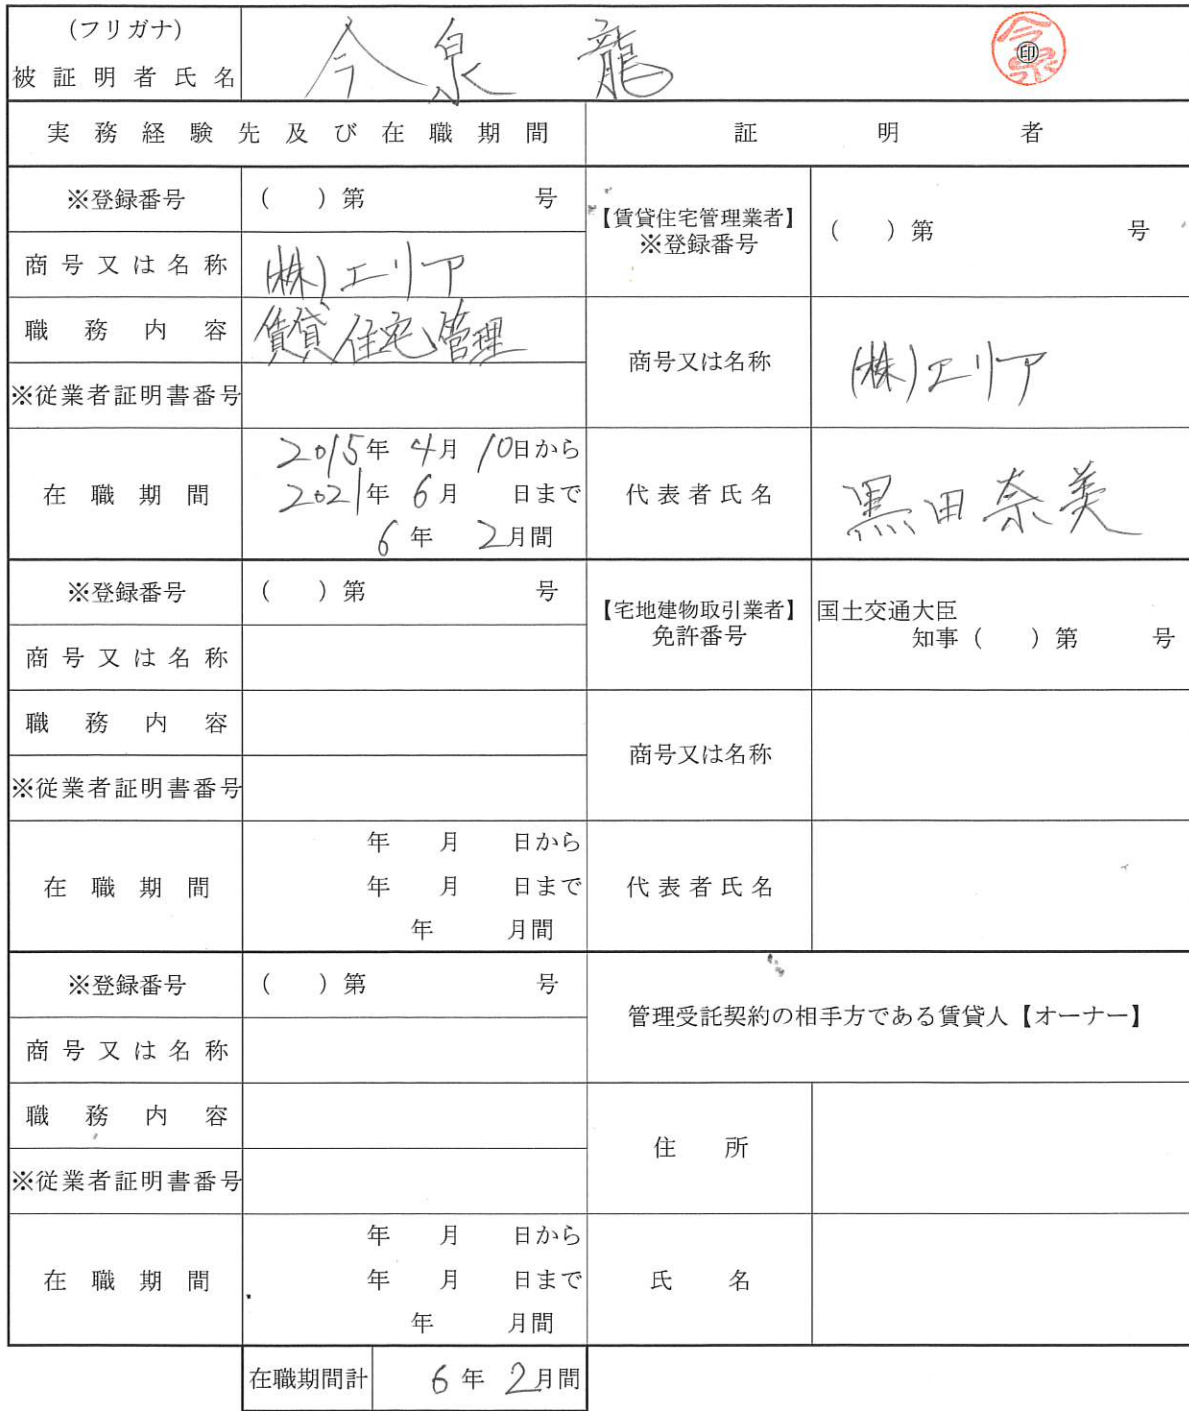 (フリガナ)
被証明者氏名 今泉 龍 今泉 ㊞
実務経験先及び在職期間 証明者
※登録番号 ( )第 号
【賃貸住宅管理業者】
※登録番号 ( )第 号
商号又は名称 (株)エリア
職務内容 賃貸住宅管理
商号又は名称 (株)エリア
※従業者証明書番号
在職期間
2015年 4月 10日から
2021年 6月 日まで
6年 2月間
代表者氏名 黒田奈美
※登録番号 ( )第 号
【宅地建物取引業者】
免許番号
国土交通大臣
知事( )第 号
商号又は名称
職務内容
商号又は名称
※従業者証明書番号
在職期間
年 月 日から
年 月 日まで
年 月間
代表者氏名
※登録番号 ( )第 号
管理受託契約の相手方である賃貸人【オーナー】
商号又は名称
職務内容
住所
※従業者証明書番号
在職期間
年 月 日から
年 月 日まで
年 月間
氏名
在職期間計 6年 2月間